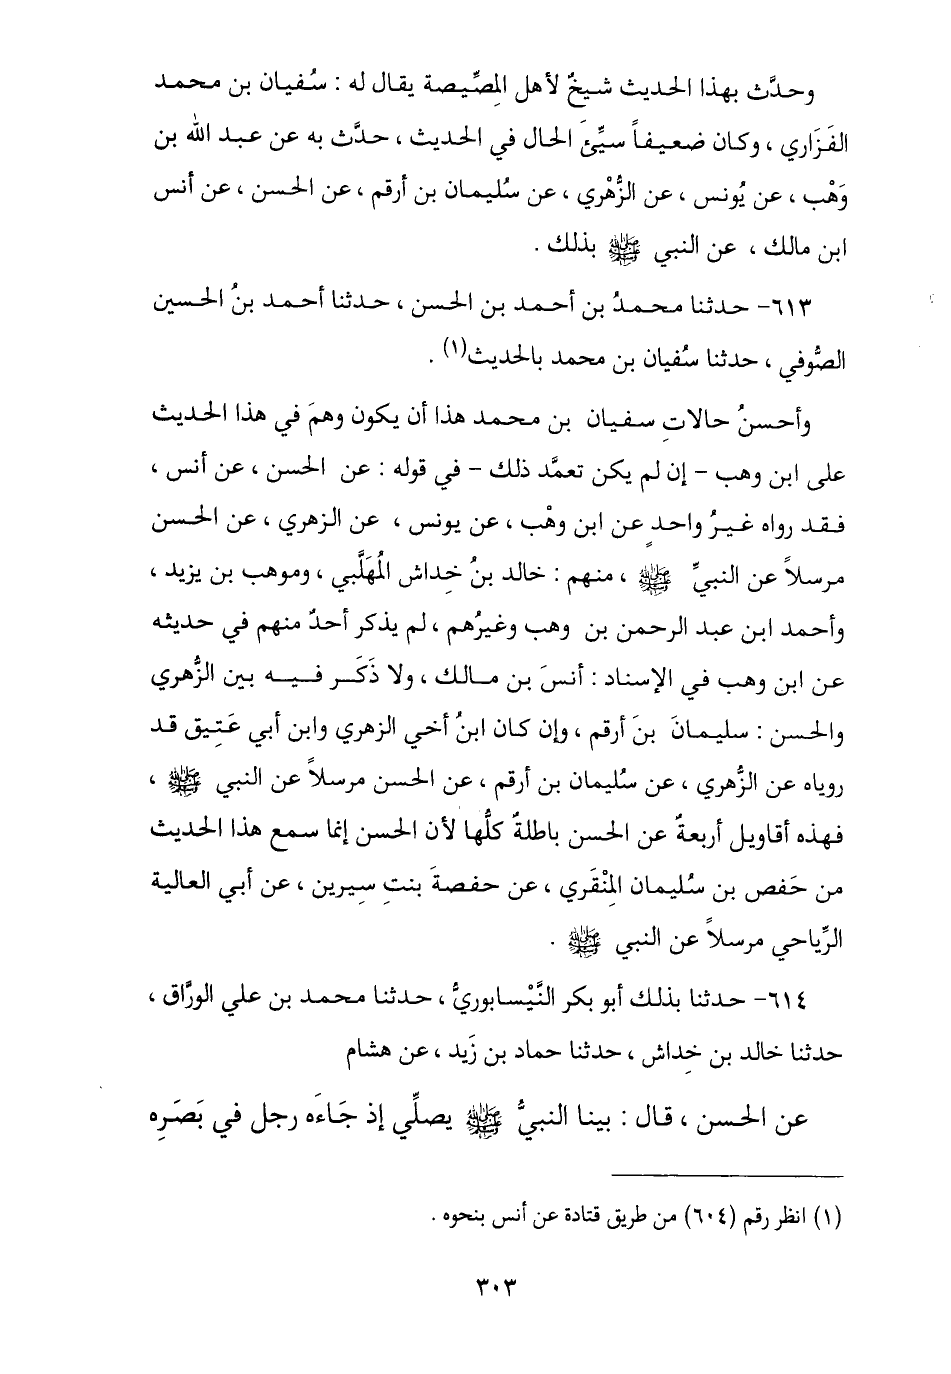 وحدَّث بهذا الحديث شيخٌ لأهل المِصِّيصة يقال له : سُفيان بن محمد
الفَزَاري ، وكان ضعيفاً سيِّئَ الحال في الحديث ، حدَّث به عن عبد الله بن
وَهْب ، عن يُونس ، عن الزُّهْري ، عن سُليمان بن أرقم ، عن الحسن ، عن أنس
ابن مالك ، عن النبي ﷺ بذلك .
٦١٣- حدثنا محمدُ بن أحمد بن الحسن ، حدثنا أحمد بنُ الحسين
الصُّوفي ، حدثنا سُفيان بن محمد بالحديث(١) .
وأحسنُ حالاتِ سفيان بن محمد هذا أن يكون وهمَ في هذا الحديث
على ابن وهب – إن لم يكن تعمَّد ذلك – في قوله : عن الحسن ، عن أنس ،
فقد رواه غيرُ واحدٍ عن ابن وهْب ، عن يونس ، عن الزهري ، عن الحسن
مرسلاً عن النبيِّ ﷺ ، منهم : خالد بنُ خِداش المُهَلَّبي ، وموهب بن يزيد ،
وأحمد ابن عبد الرحمن بن وهب وغيرُهم ، لم يذكر أحدٌ منهم في حديثه
عن ابن وهب في الإسناد : أنسَ بن مالك ، ولا ذَكَر فيه بين الزُّهري
والحسن : سليمانَ بنَ أرقم ، وإن كان ابنُ أخي الزهري وابن أبي عَتِيق قد
روياه عن الزُّهري ، عن سُليمان بن أرقم ، عن الحسن مرسلاً عن النبي ﷺ ،
فهذه أقاويل أربعةٌ عن الحسن باطلةٌ كلُّها لأن الحسن إنما سمع هذا الحديث
من حَفص بن سُليمان المِنْقَري ، عن حفصةَ بنتِ سِيرين ، عن أبي العالية
الرِّياحي مرسلاً عن النبي ﷺ .
٦١٤- حدثنا بذلك أبو بكر النَّيْسابوريُّ ، حدثنا محمد بن علي الورَّاق ،
حدثنا خالد بن خِداش ، حدثنا حماد بن زَيد ، عن هشام
عن الحسن ، قال : بينا النبيُّ ﷺ يصلِّي إذ جَاءَه رجل في بَصَرِه
(١) انظر رقم (٦٠٤) من طريق قتادة عن أنس بنحوه .
٣٠٣